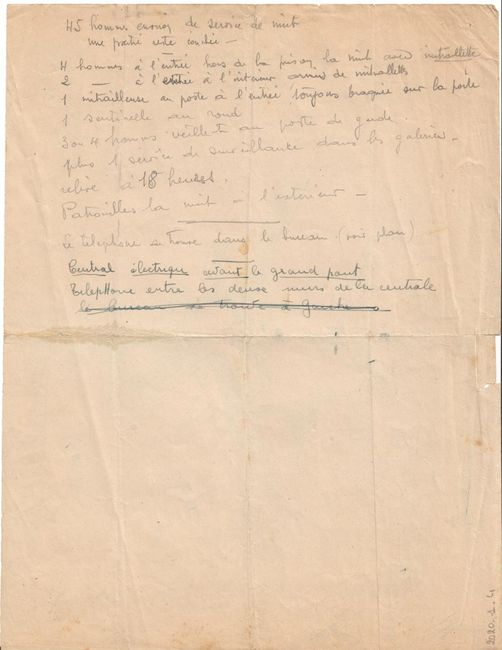 45 hommes environ de service de nuit
une partie reste couchée -
4 hommes à l'entrée hors de la prison la nuit avec mitraillette
2 — à l'entrée à l'intérieur armés de mitraillette
1 mitrailleuse au poste à l'entrée toujours braquée sur la porte
1 sentinelle au rond
3 ou 4 hommes veillent au poste de garde
plus 1 service de surveillance dans les galeries -
relève à 18 heures.
Patrouilles la nuit à l'extérieur -
Le telephone se trouve dans le bureau (voir plan)
Central électrique avant le grand pont
Telephone entre les deux murs de la centrale
le bureau se trouve à Gauche
2020.1.4